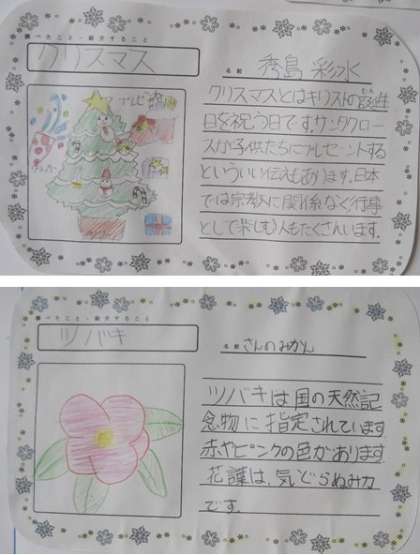 調べたこと・紹介すること
クリスマス
名前 秀島 彩水
クリスマスとはキリストの誕生
日を祝う日です。サンタクロー
スが子供たちにプレゼントする
といういい伝えもあります。日本
では宗教に関係なく行事
として楽しむ人もたくさんいます。
調べたこと・紹介すること
ツバキ
名前 さんのみかん
ツバキは国の天然記
念物に指定されています
赤やピンクの色があります
花言葉は、気どらぬみ力
です。